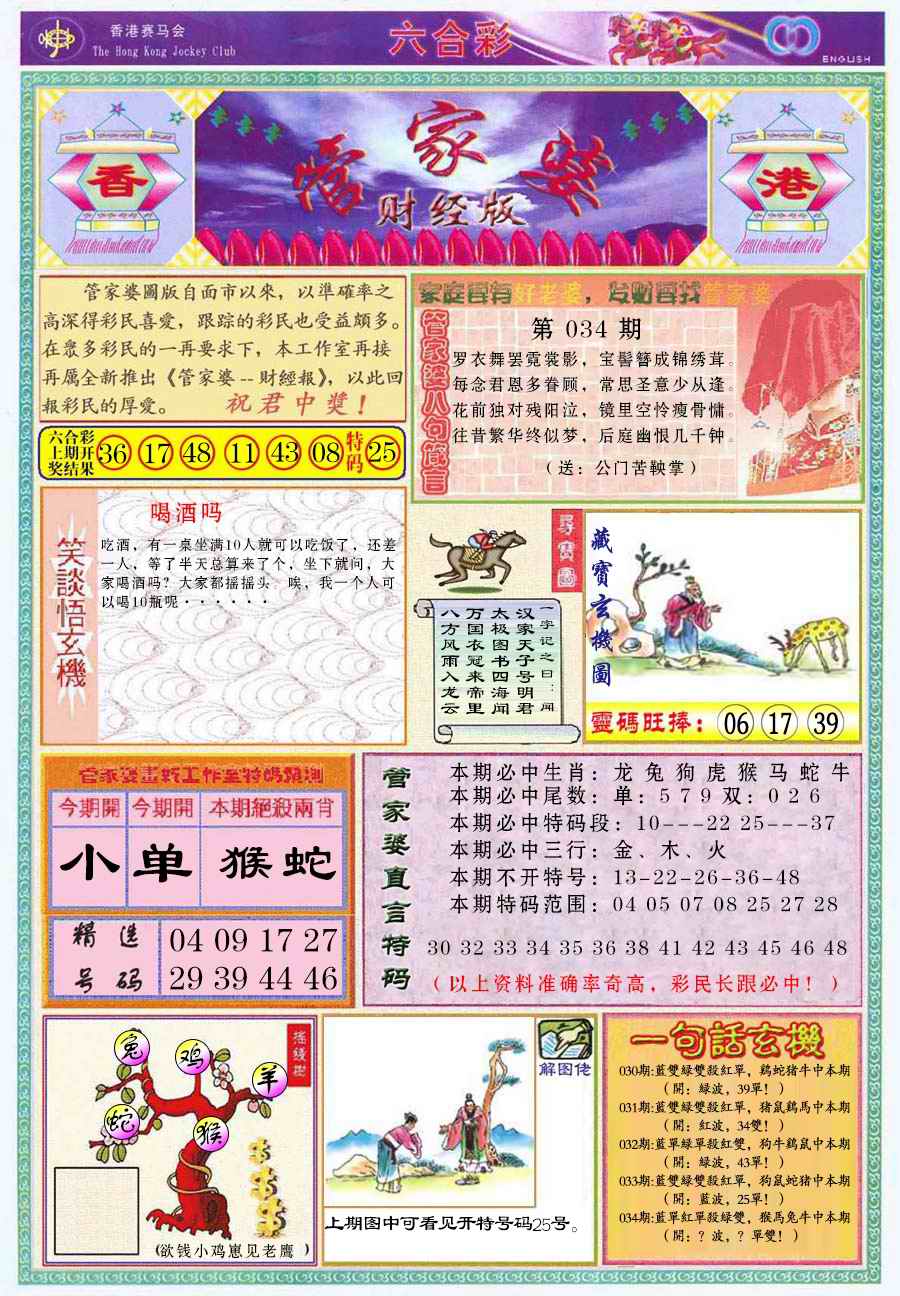 香港赛马会
The Hong Kong Jockey Club
六合彩
ENGLISH
香
管家婆
财经版
港
管家婆圖版自面市以來，以準確率之
高深得彩民喜愛，跟踪的彩民也受益頗多。
在眾多彩民的一再要求下，本工作室再接
再厲全新推出《管家婆--財經報》，以此回
報彩民的厚爱。 祝君中獎！
六合彩
上期开
奖结果
36 17 48 11 43 08 特码 25
家庭要有好老婆，发财要找管家婆
管家婆八句箴言
第 034 期
罗衣舞罢霓裳影，宝髻簪成锦绣茸。
每念君恩多眷顾，常思圣意少从逢。
花前独对残阳泣，镜里空怜瘦骨慵。
往昔繁华终似梦，后庭幽恨几千钟。
（送：公门苦鞅掌）
笑談悟玄機
喝酒吗
吃酒，有一桌坐满10人就可以吃饭了，还差
一人，等了半天总算来了个，坐下就问，大
家喝酒吗？大家都摇摇头。唉，我一个人可
以喝10瓶呢······
尋寶圖
一字记之曰：闻
汉家天子号明君
太极图书四海闻
万国衣冠来帝里
八方风雨入龙云
藏寶玄機圖
靈碼旺捧： 06 17 39
管家婆畫數工作室特碼預測
今期開 今期開 本期絕殺兩肖
小 单 猴蛇
精选号码
04 09 17 27
29 39 44 46
管家婆直言特码
本期必中生肖：龙兔狗虎猴马蛇牛
本期必中尾数：单：579双：026
本期必中特码段：10---22 25---37
本期必中三行：金、木、火
本期不开特号：13-22-26-36-48
本期特码范围：04 05 07 08 25 27 28
30 32 33 34 35 36 38 41 42 43 45 46 48
（以上资料准确率奇高，彩民长跟必中！）
摇錢樹
兔
鸡
羊
蛇
猴
（欲钱小鸡崽见老鹰）
解图佬
上期图中可看见开特号码25号。
一句話玄機
030期:藍雙綠雙殺紅單，鷄蛇猪牛中本期
（開：緑波，39單！）
031期:藍雙綠雙殺紅單，猪鼠鷄馬中本期
（開：紅波，34雙！）
032期:藍單綠單殺紅雙，狗牛鷄鼠中本期
（開：緑波，43單！）
033期:藍雙綠雙殺紅單，狗鼠蛇猪中本期
（開：藍波，25單！）
034期:藍單紅單殺綠雙，猴馬兔牛中本期
（開：？波，？單雙！）